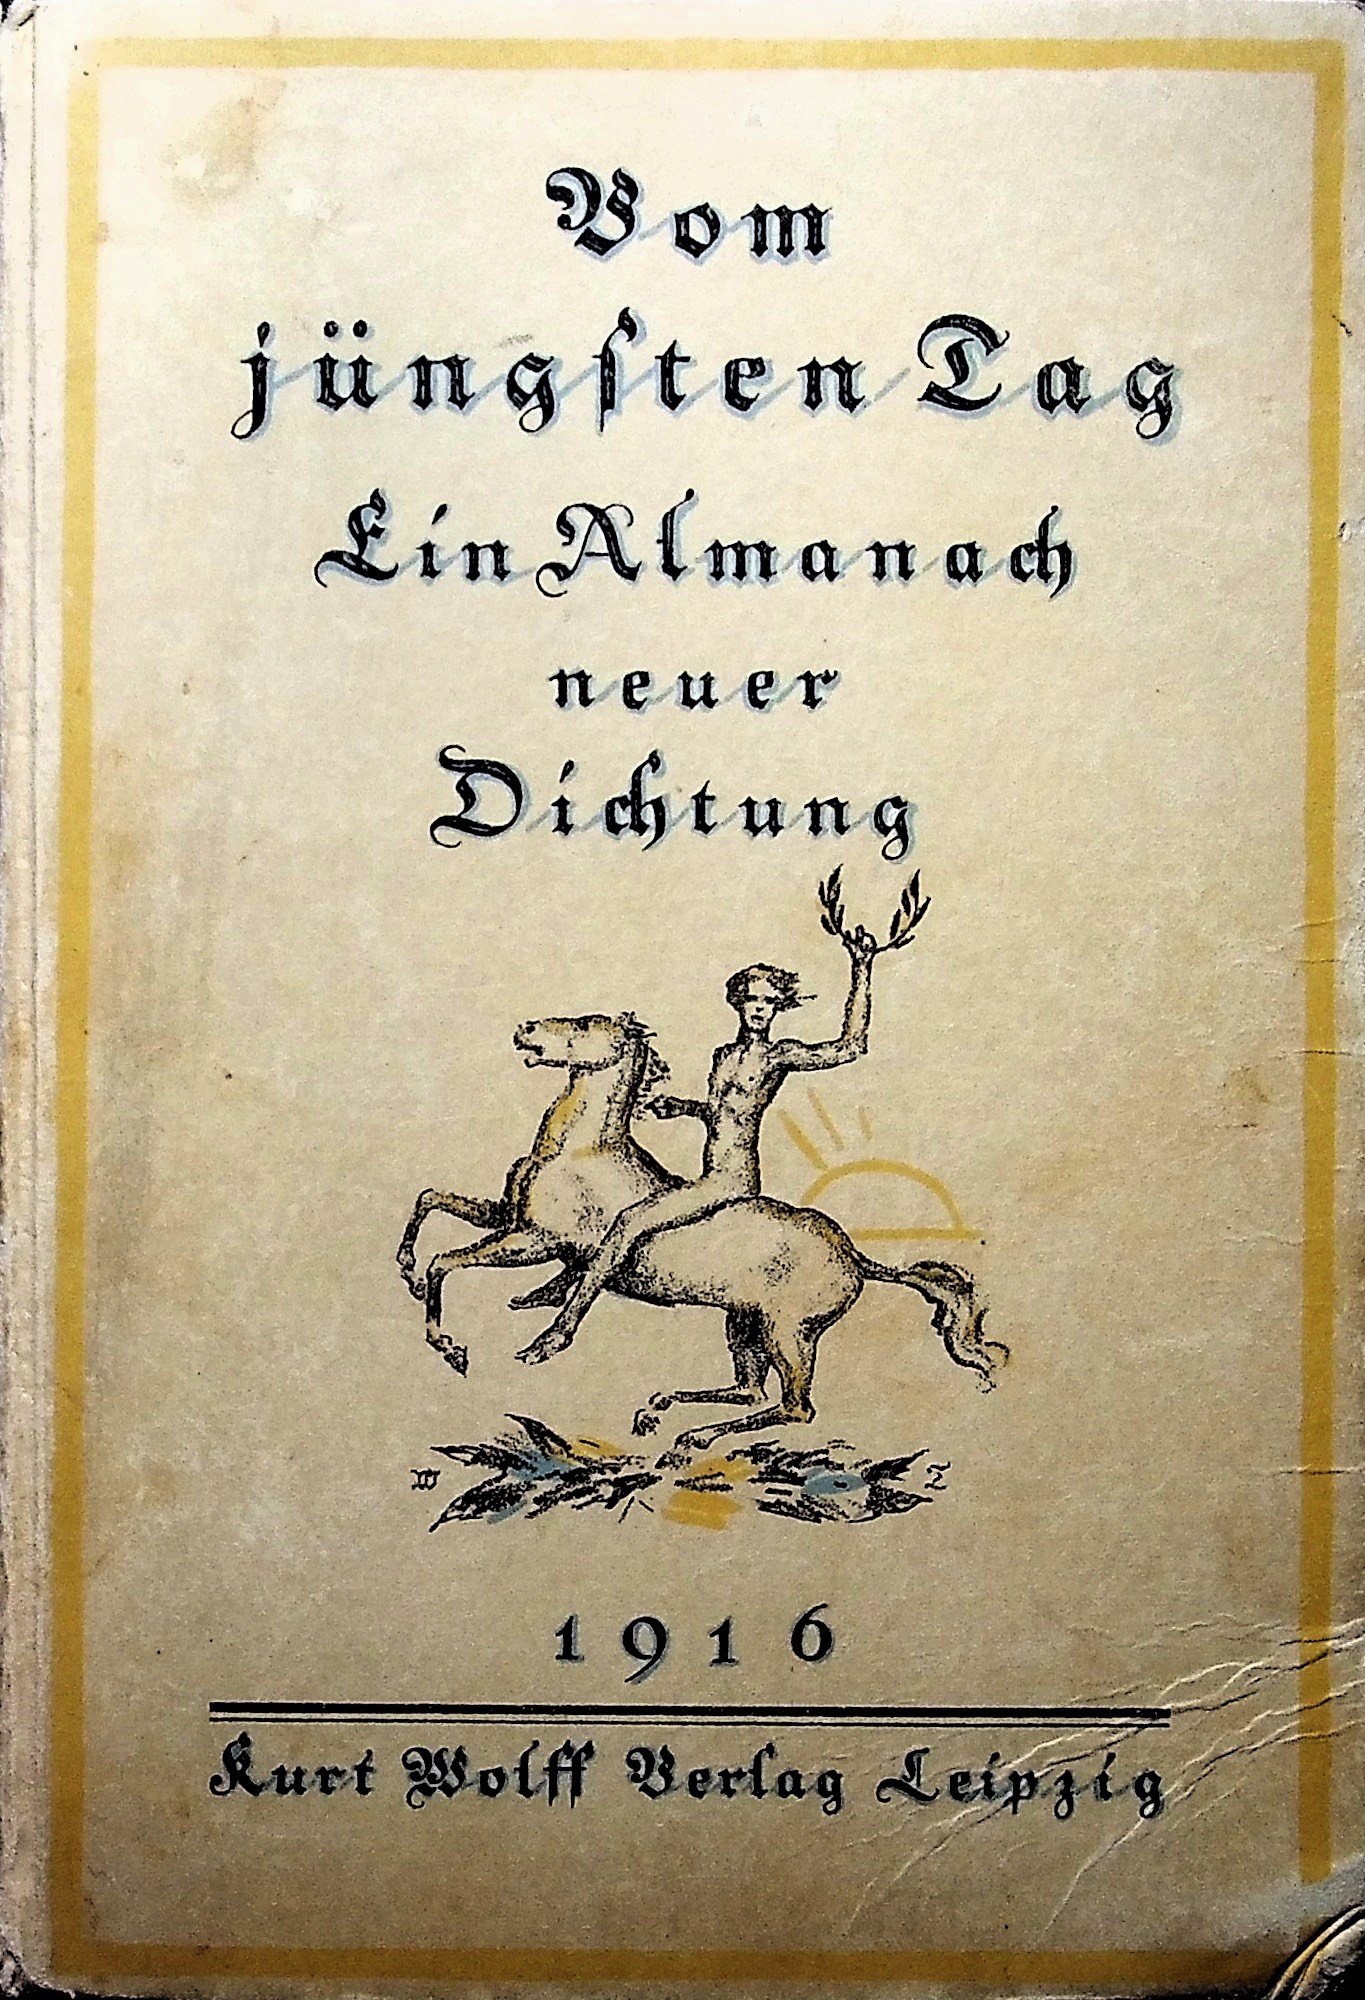 Vom
jüngſten Tag
Ein Almanach
neuer
Dichtung
W T
1916
Kurt Wolff Verlag Leipzig